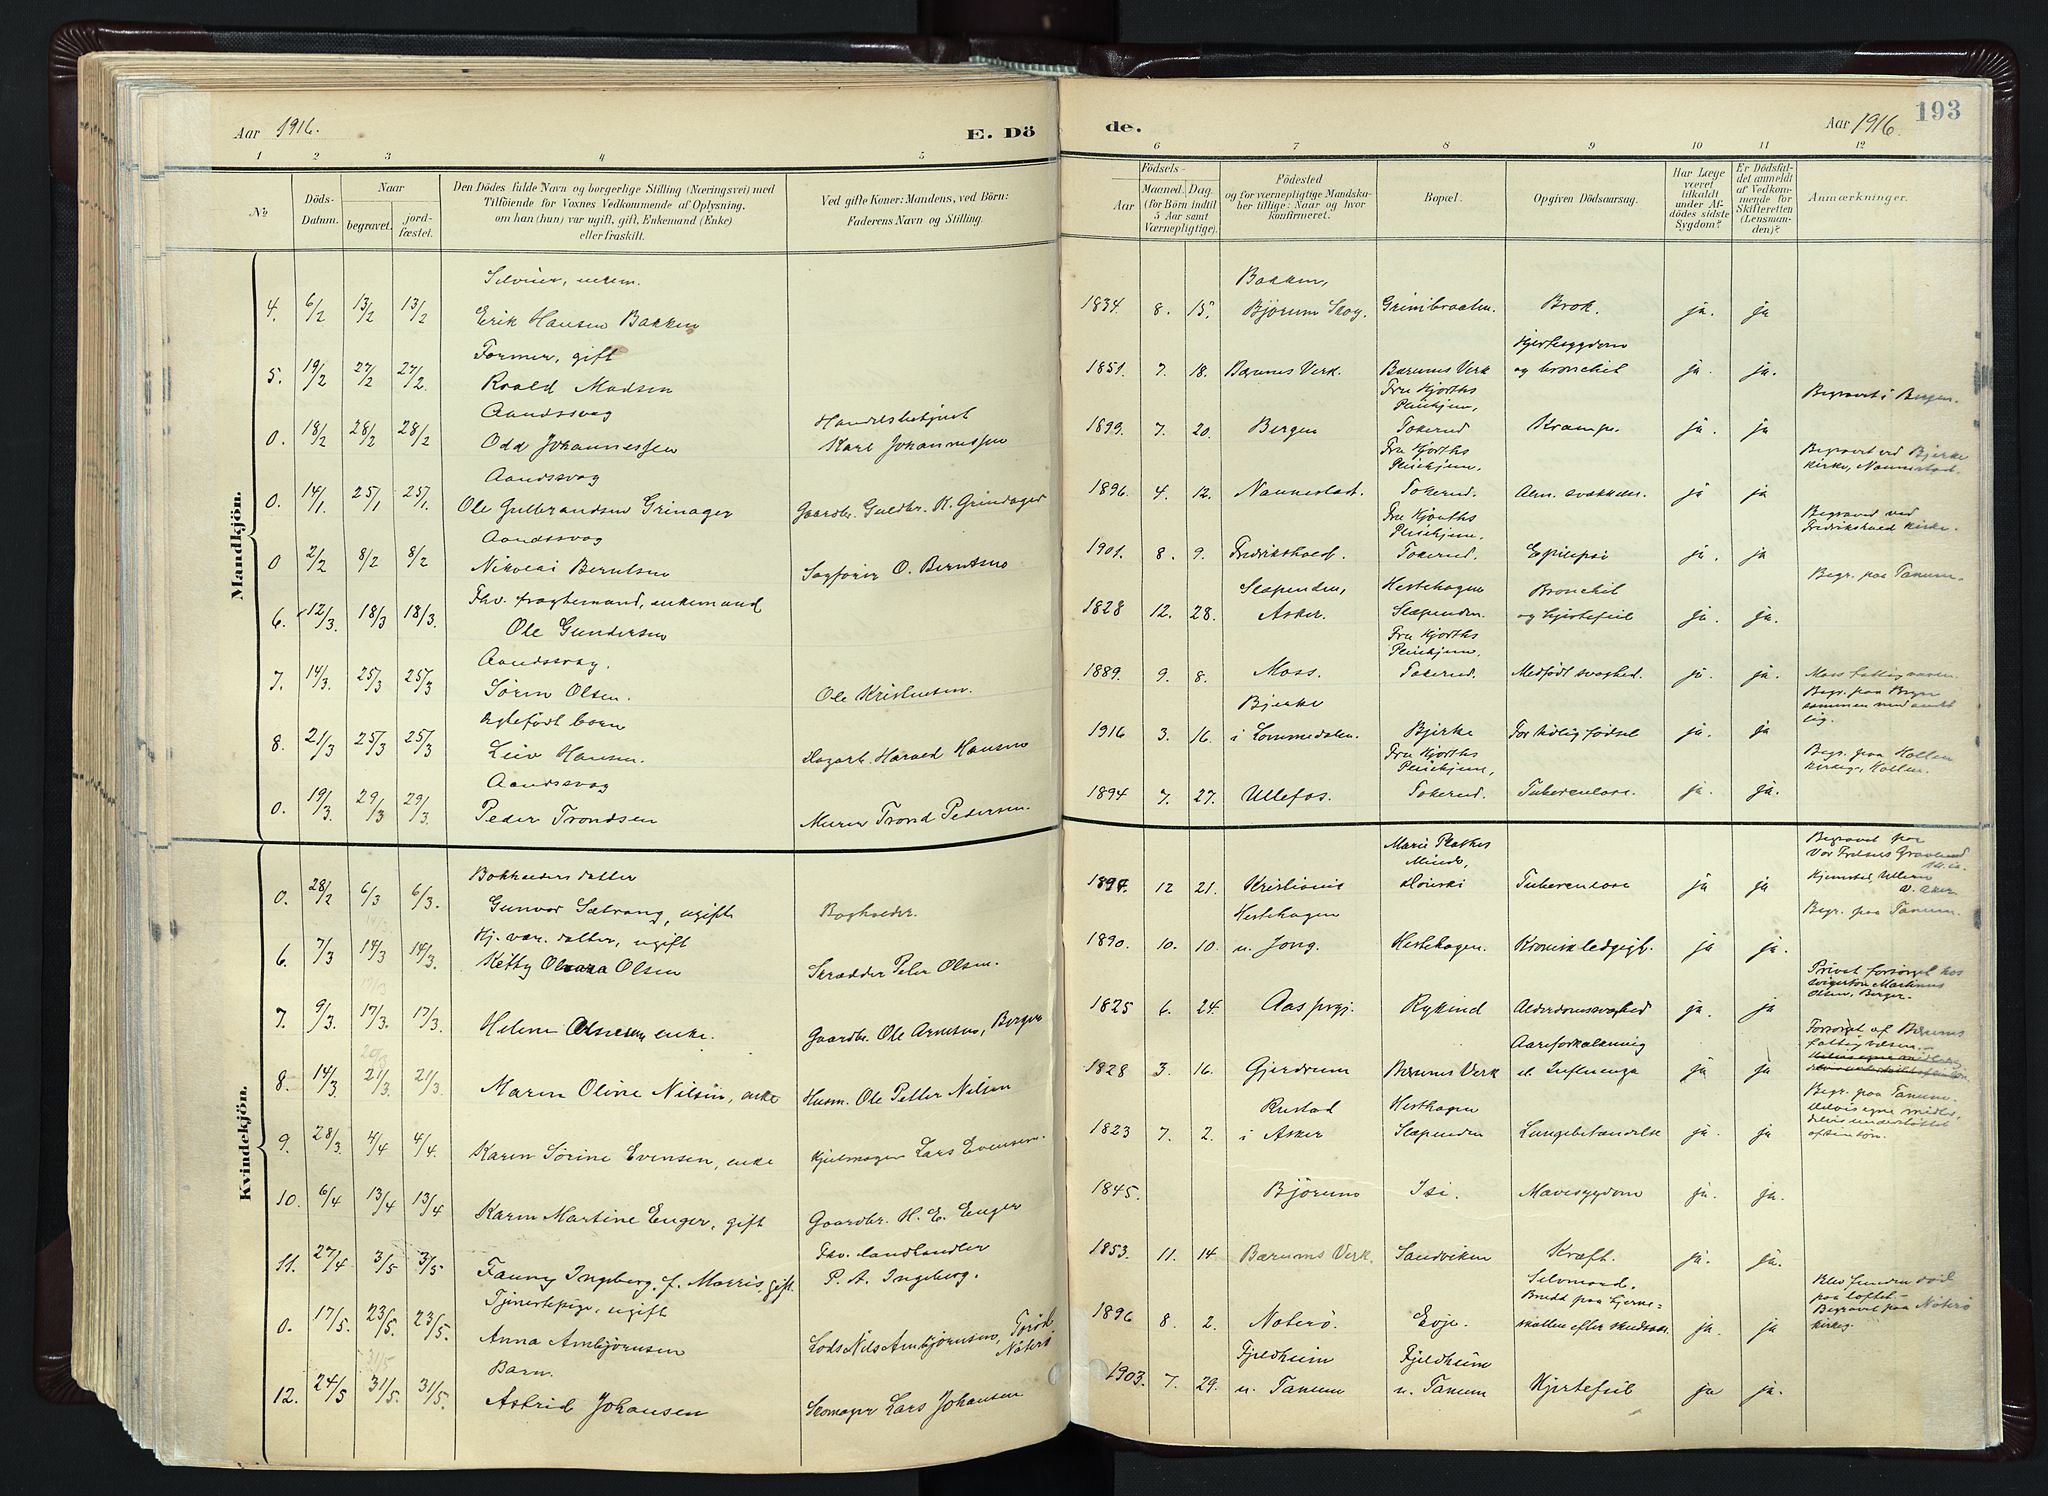 Aar 1916.
E. Dö
de.
Aar 1916.
193
1 2 3 4 5
6 7 8 9 10 11 12
No
Döds-Datum.
Naar
begravet.
jord-fæstet.
Den Dödes fulde Navn og borgerlige Stilling (Næringsvei) med
Tilföiende for Voxnes Vedkommende af Oplysning,
om han (hun) var ugift, gift, Enkemand (Enke)
eller fraskilt.
Ved gifte Koner: Mandens, ved Börn:
Faderens Navn og Stilling.
Födsels-
Aar
Maaned. Dag.
(for Börn indtil
5 Aar samt
Værnepligtige).
Födested
og for værnepligtige Mandska-
ber tillige: Naar og hvor
konfirmeret.
Bopæl.
Opgiven Dödsaarsag.
Har Læge
været
tilkaldt
under Af-
dödes sidste
Sygdom?
Er Dödsfal-
det anmeldt
af Vedkom-
mende for
Skifteretten
(Lensman-
den)?
Anmærkninger.
Mandkjön.
Selveier, enkem.
4. 6/2 13/2 13/2 Erik Hansen Bakken
1834. 8. 15. Bakken, Bjørum Skog. Grinibraaten. Brok. ja. ja
Former, gift
5. 19/2 27/2 27/2 Roald Madsen
1851. 7. 18. Bærums Verk. Bærums Verk Hjertesygdom og bronchit ja. ja.
Aandssvag
0. 18/2 28/2 28/2 Odd Johannessen Handelsbetjent Karl Johannessen
1899. 7. 20. Bergen Fru Hjorths Pleiehjem, Tokerud Krampe. ja. ja Begravet i Bergen.
Aandssvag
0. 14/1. 25/1 25/1. Ole Gulbrandsen Grinager Gaardbr. Guldbr. K. Grindager
1896. 4. 12. Nannestad. Fru Hjorths Pleiehjem, Tokerud. Alm. svækkelse. ja ja Begravet ved Bjerke kirke, Nannestad.
Aandssvag
0 2/2 8/2 8/2 Nikolai Berntsen Sagfører O. Berntsen
1901. 8. 9. Fredrikshald. Fru Hjorths Pleiehjem, Tokerud. Epilepsi ja. ja Begravet ved Fredrikshald kirke.
Fhv. fragtemand, enkemand
6. 12/3. 18/3 18/3. Ole Gundersen
1828 12. 28. Slæpenden, Asker. Hestehagen Slæpenden Bronchit og hjertefeil ja. ja. Begr. paa Tanum.
Aandssvag.
7. 14/3. 25/3 25/3 Søren Olsen. Ole Kristensen.
1889. 9. 8. Moss. Fru Hjorths Pleiehjem, Tokerud. Medfødt svaghed. ja. ja. Moss fattigvæsen.
Ægtefødt barn
8. 21/3 25/3 25/3 Leiv Hansen. Harald Hansen
1916 3. 16. Bjerke i Lommedalen. Bjerke For tidlig fødsel ja. ja Begr. paa Bryn sammen med
Aandssvag
0. 19/3. 29/3 29/3. Peder Trondsen Murer Trond Pedersen.
1894 7. 27. Ullefos. Fru Hjorths Pleiehjem, Tokerud. Tuberculose. ja. ja. Begr. paa Hollen kirkeg., Hollen.
Kvindekjön.
Bokholders datter
0. 28/2 6/3 6/3. Gunvor Sætrang, ugift Bogholder.
1897. 12 21. Kristiania Marie Plathes Minde, Høvik Tuberculose ja ja Begravet paa Vor Frelsers Gravlund
Hjemsted, Ullern V. Aker
Hj. vær. datter, ugift
6. 7/3 14/3 14/3. Ketty Olsen Skrædder Peter Olsen.
1890. 10. 10. Hestehagen u. Jong. Hestehagen. Kronisk ledgigt. ja ja. Begr. paa Tanum.
7. 9/3. 17/3. 17/3. Helene enke. Gaardbr. Ole Arnesen, Berger
1825 6. 24. Aas prgj. Rykind Alderdomssvaghed ja. ja Privat forsørget hos svigersøn Martinus Olsen, Berger.
8. 14/3 21/3 21/3 Maren Oline Nilsen, enke Husm. Ole Petter Nilsen
1828 3. 16. Gjerdrum Bærums Verk Aareforkalkning u. Influenza ja ja Forsørget af Bærums fattigvæsen.
9. 28/3. 4/4 4/4. Karen Sørine Evensen, enke Hjulmager Lars Evensen.
1823 7. 2. Rustad i Asker Hesthagen Slæpenden Lungebetændelse ja. ja Begr. paa Tanum. Delvis egne midler, delvis understøttet af sin søn.
10. 6/4 13/4 13/4 Karen Martine Enger, gift Gaardbr. H. E. Enger
1845. Bjørum Isi. Mavesygdom ja. ja.
11. 27/4 3/5 3/5. Fanny Ingeberg, f. Morris, gift. Fhv. landhandler P. A. Ingeberg.
1853. 11. 14. Bærums Verk. Sandviken Kræft. ja. ja.
Tjenestepige, ugift
0. 17/5. 23/5. 23/5. Anna Ambjørnsen Lods Nils Ambjørnsen, Torød Nøterø
1896 8. 2. Nøterø. Evje. Selvmord. Brudd paa hjerneskallen efter skudsaar. ja. ja Blev funden død paa loftet. Begravet paa Nøterø kirkeg.
Barn.
12. 24/5 31/5. 31/5. Astrid Johansen Skomager Lars Johansen
1903. 7. 29. Fjeldheim u. Tanum Fjeldheim u. Tanum Hjertefeil ja ja.